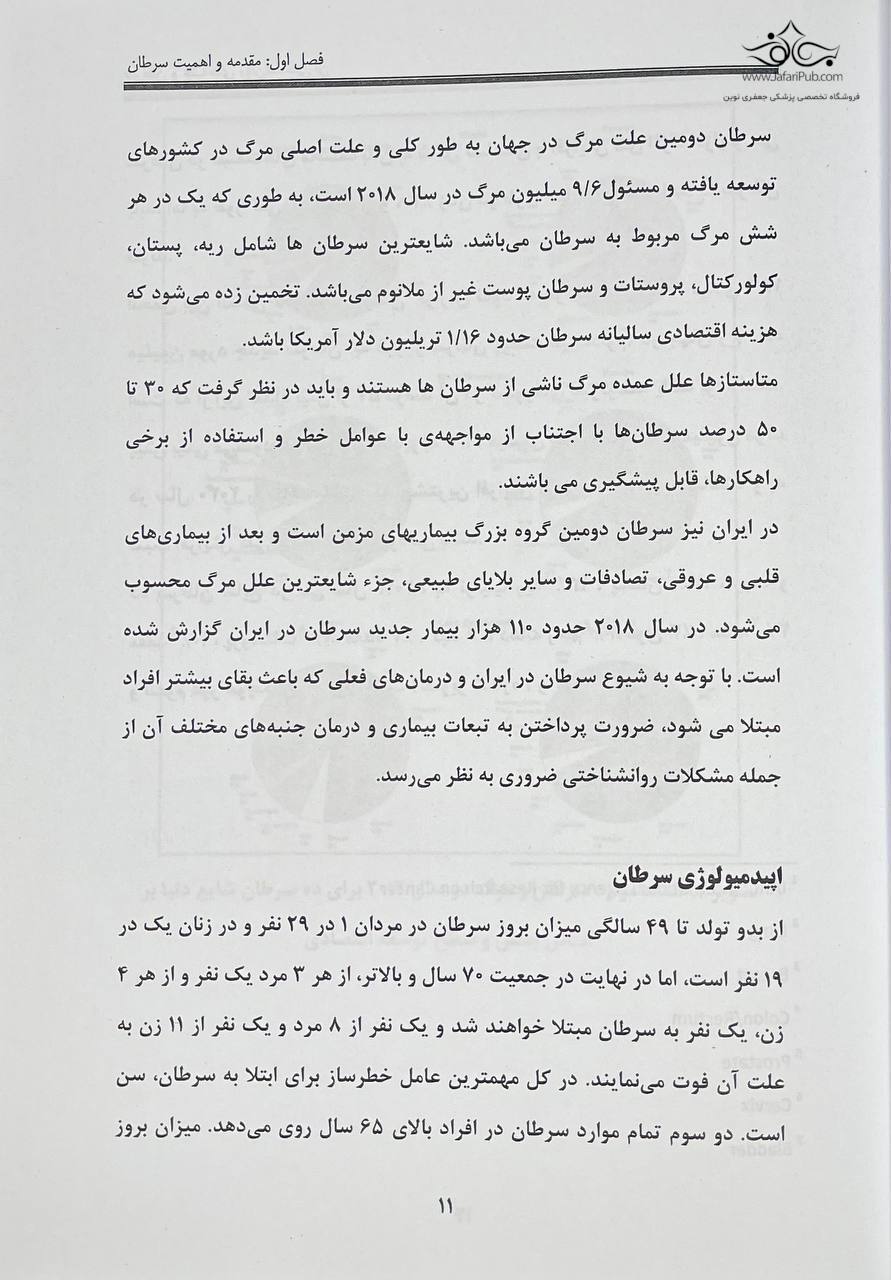 فصل اول: مقدمه و اهمیت سرطان
جعفری
www.JafariPub.com
فروشگاه تخصصی پزشکی جعفری نوین
سرطان دومین علت مرگ در جهان به طور کلی و علت اصلی مرگ در کشورهای
توسعه یافته و مسئول۹/۶ میلیون مرگ در سال ۲۰۱۸ است، به طوری که یک در هر
شش مرگ مربوط به سرطان می‌باشد. شایعترین سرطان ها شامل ریه، پستان،
کولورکتال، پروستات و سرطان پوست غیر از ملانوم می‌باشد. تخمین زده می‌شود که
هزینه اقتصادی سالیانه سرطان حدود ۱/۱۶ تریلیون دلار آمریکا باشد.
متاستازها علل عمده مرگ ناشی از سرطان ها هستند و باید در نظر گرفت که ۳۰ تا
۵۰ درصد سرطان‌ها با اجتناب از مواجهه‌ی با عوامل خطر و استفاده از برخی
راهکارها، قابل پیشگیری می باشند.
در ایران نیز سرطان دومین گروه بزرگ بیماریهای مزمن است و بعد از بیماری‌های
قلبی و عروقی، تصادفات و سایر بلایای طبیعی، جزء شایعترین علل مرگ محسوب
می‌شود. در سال ۲۰۱۸ حدود ۱۱۰ هزار بیمار جدید سرطان در ایران گزارش شده
است. با توجه به شیوع سرطان در ایران و درمان‌های فعلی که باعث بقای بیشتر افراد
مبتلا می شود، ضرورت پرداختن به تبعات بیماری و درمان جنبه‌های مختلف آن از
جمله مشکلات روانشناختی ضروری به نظر می‌رسد.
اپیدمیولوژی سرطان
از بدو تولد تا ۴۹ سالگی میزان بروز سرطان در مردان ۱ در ۲۹ نفر و در زنان یک در
۱۹ نفر است، اما در نهایت در جمعیت ۷۰ سال و بالاتر، از هر ۳ مرد یک نفر و از هر ۴
زن، یک نفر به سرطان مبتلا خواهند شد و یک نفر از ۸ مرد و یک نفر از ۱۱ زن به
علت آن فوت می‌نمایند. در کل مهمترین عامل خطرساز برای ابتلا به سرطان، سن
است. دو سوم تمام موارد سرطان در افراد بالای ۶۵ سال روی می‌دهد. میزان بروز
۱۱